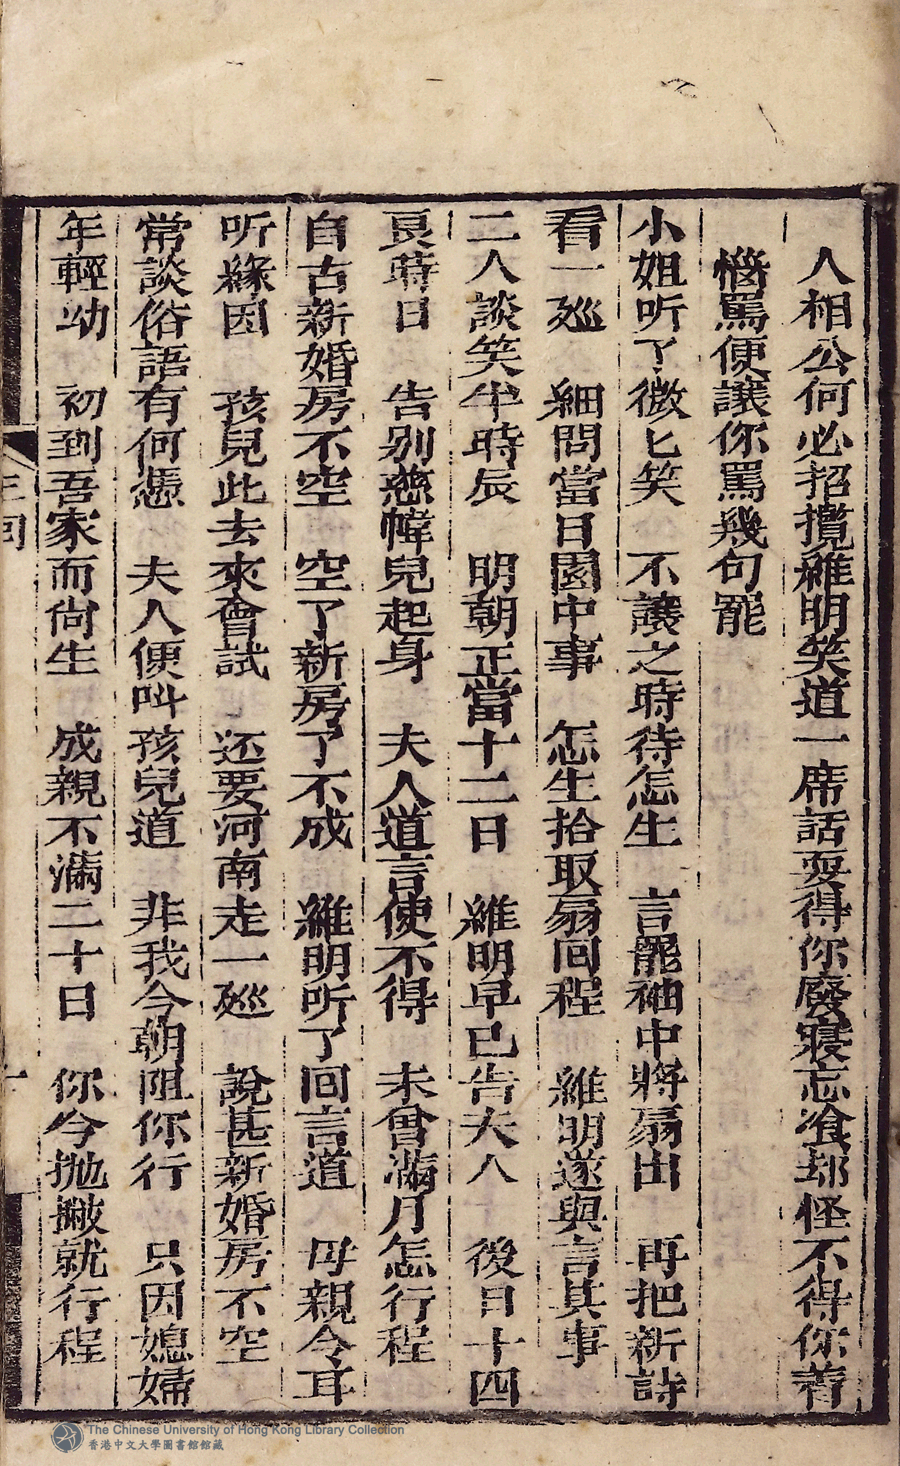 人相公何必招攬維明笑道一席話耍得你廢寢忘飡却怪不得你着
惱罵便讓你罵幾句罷
小姐听了微匕笑　不讓之時待怎生　言罷袖中將扇出　再把新詩
看一廵　細問當日園中事　怎生拾取扇回程　維明遂與言其事
二人談笑半時辰　明朝正當十二日　維明早已告夫人　後日十四
良時日　告别慈幃兒起身　夫人道言使不得　未曾滿月怎行程
自古新婚房不空　空了新房了不成　維明听了回言道　母親今耳
听緣因　孩兒此去來會試　还要河南走一廵　說甚新婚房不空
常談俗語有何憑　夫人便叫孩兒道　非我今朝阻你行　只因媳婦
年輕㓜　初到吾家而尙生　成親不滿二十日　你今抛撇就行程
三回
The Chinese University of Hong Kong Library Collection
香港中文大學圖書館館藏